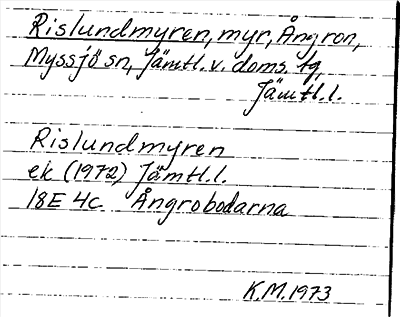 Rislundmyren, myr, Ångron,
Myssjö sn, Jämtl. v. doms. tg,
Jämtl. l.
Rislundmyren
ek (1972) Jämtl. l.
18E 4c Ångrobodarna
K.M. 1973